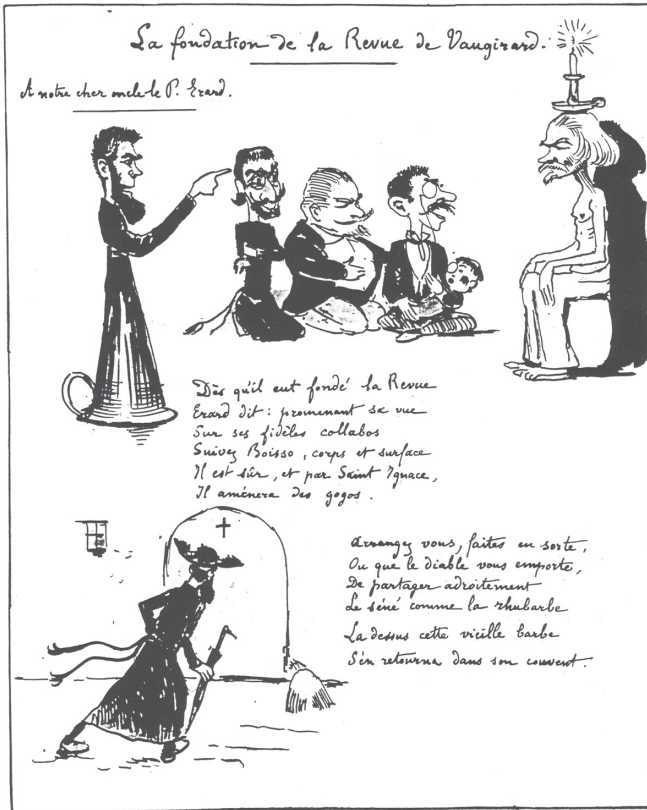 La fondation de la Revue de Vaugirard.
A notre cher oncle le P. Erard.
Dès qu'il eut fondé la Revue
Erard dit : promenant sa vue
Sur ses fidèles collabos
Suivez Boisso, corps et surface
Il est sûr, et par Saint Ignace,
Il aménera des gogos.
Arrangez vous, faites en sorte,
Ou que le diable vous emporte,
De partager adroitement
Le séné comme la rhubarbe
La dessus cette vieille barbe
S'en retourna dans son couvent.